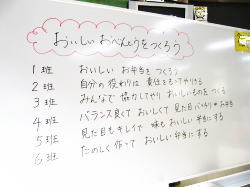 おいしいおべんとうをつくろう
1班 おいしい お弁当を つくろう
2班 自分の 役わりは 責任をもってやりきる
3班 みんなで 協力してやり おいしいものを つくる
4班 バランス良くて おいしくて 見た目バッチリ お弁当
5班 見た目も キレイで 味も おいしい 弁当にする
6班 たのしく 作って おいしい 弁当にする